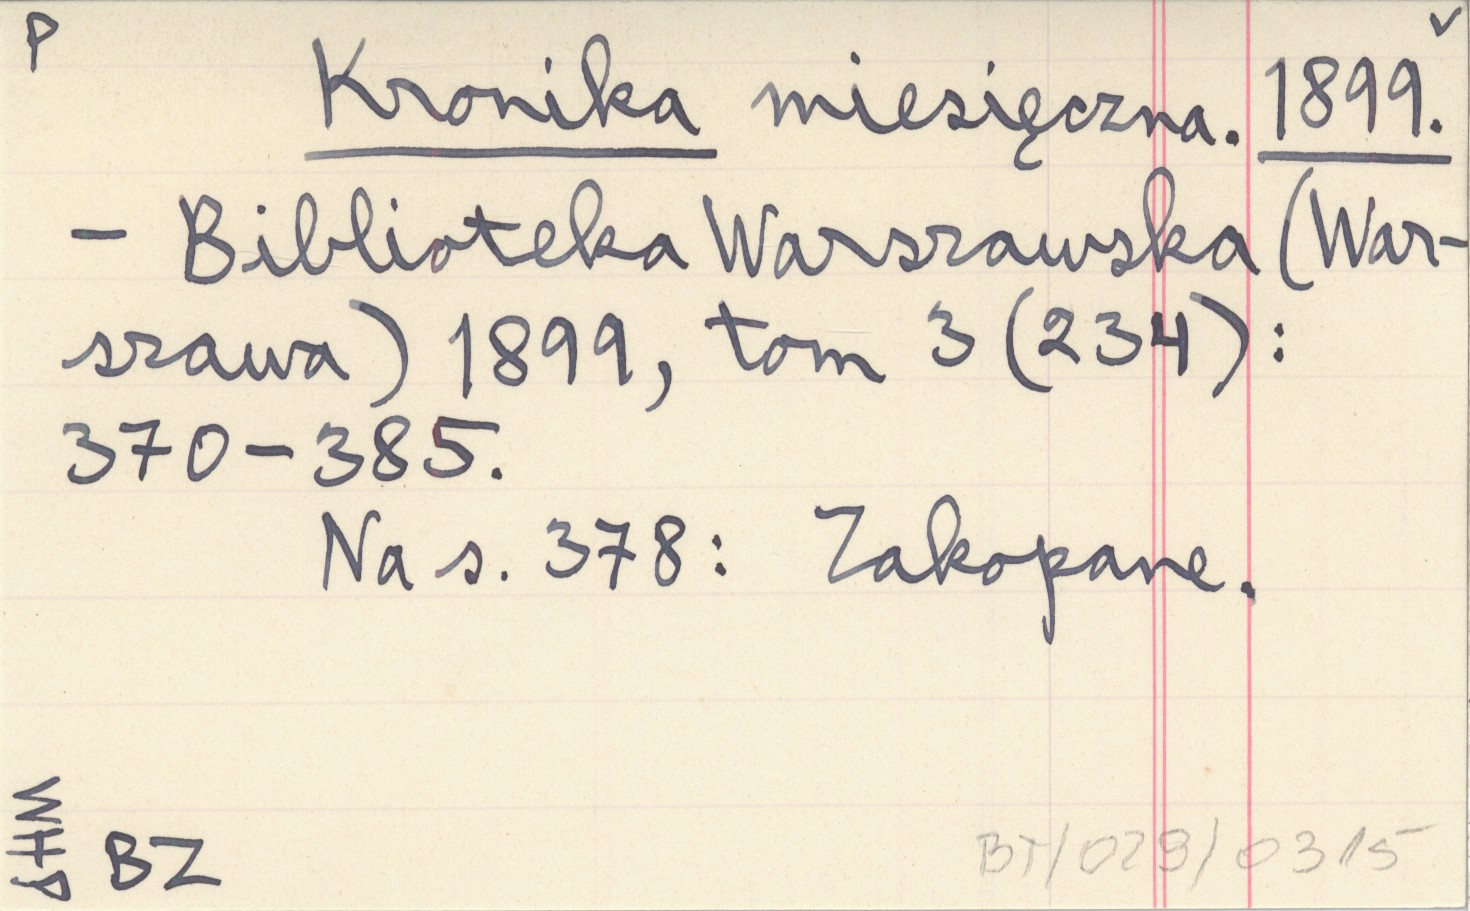 P
v
Kronika miesięczna. 1899.
- Biblioteka Warszawska (War-
szawa) 1899, tom 3 (234):
370-385.
Na s. 378: Zakopane.
BZ
BT/029/0315